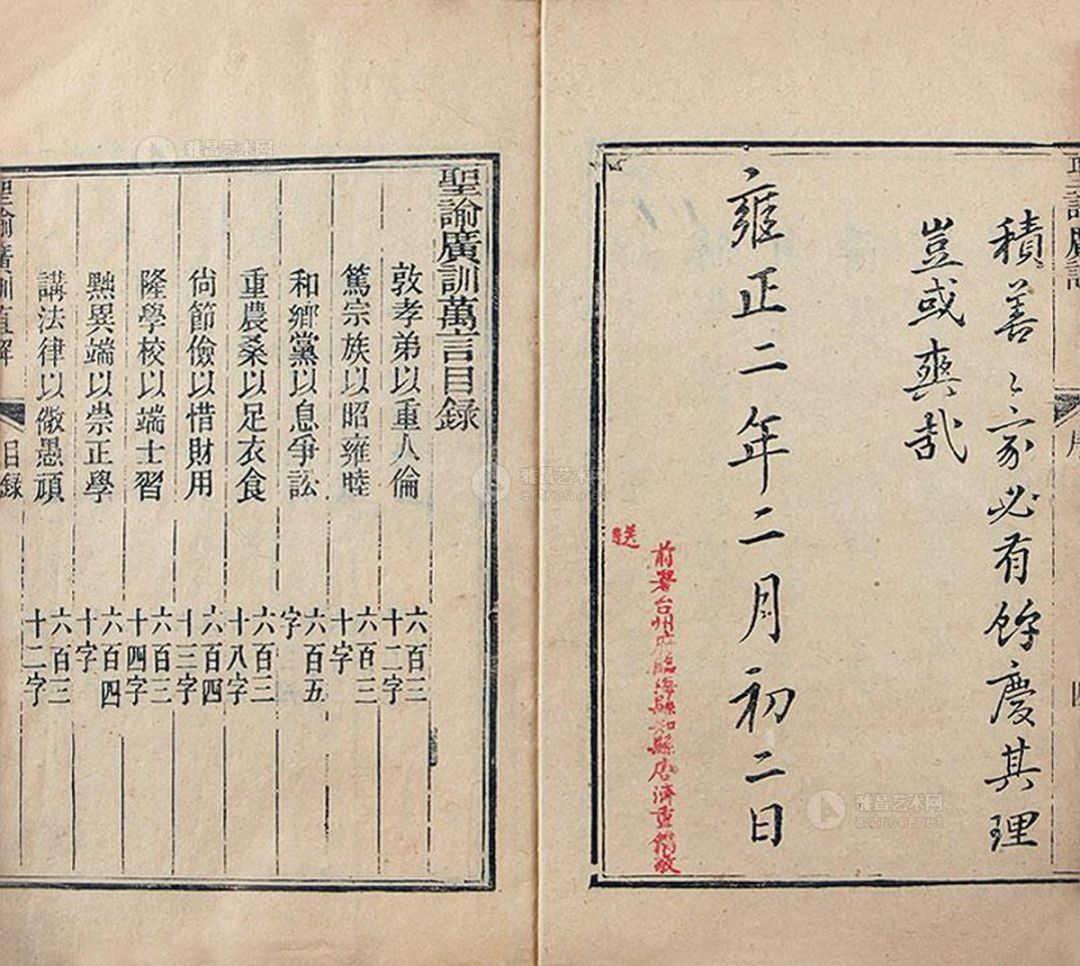 積善〻家必有餘慶其理
豈或爽哉
雍正二年二月初二日
前署台州府臨海縣知縣唐濟重備敬
送
序
四
聖諭廣訓萬言目錄
敦孝弟以重人倫 六百三十二字
篤宗族以昭雍睦 六百三十字
和鄉黨以息爭訟 六百五字
重農桑以足衣食 六百三十八字
尙節儉以惜財用 六百四十三字
隆學校以端士習 六百三十四字
黜異端以崇正學 六百四十字
講法律以儆愚頑 六百三十二字
聖諭廣訓直解
目錄
雅昌艺术网
artron.net
雅昌艺术网
artron.net
雅昌艺术网